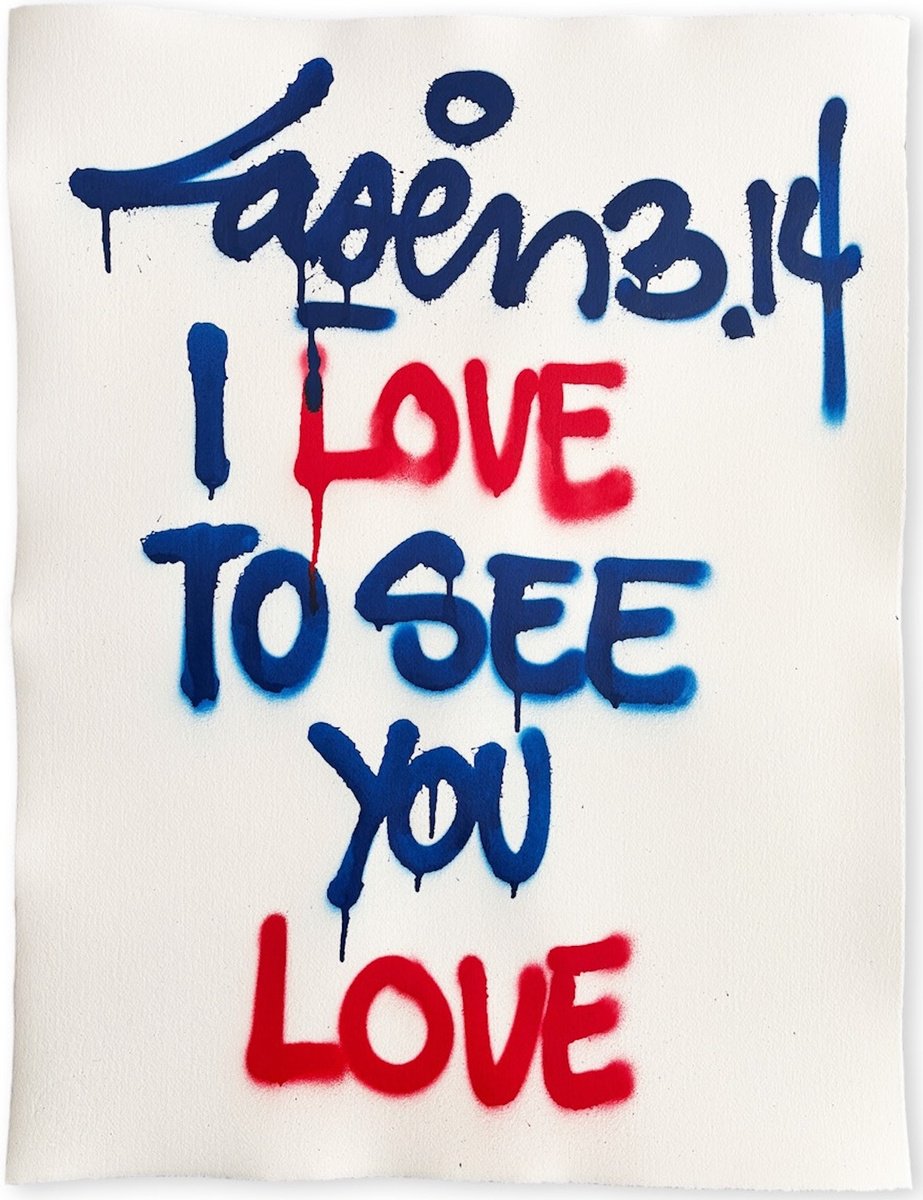 Laser3.14
I LOVE
TO SEE
YOU
LOVE